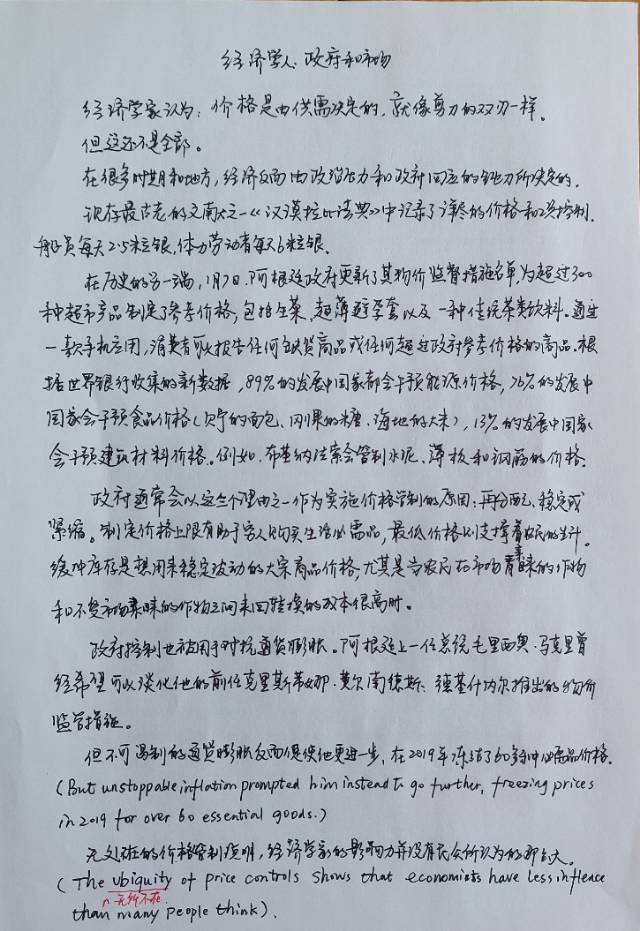 经济学人：政府和市场
经济学家认为：价格是由供需决定的，就像剪刀的双刃一样。
但这还不是全部。
在很多时期和地方，经济反而由政治压力和政府回应的钝刀所决定的。
现存最古老的文献之一《汉谟拉比法典》中记录了详尽的价格和工资控制。
船员每天2.5粒银，体力劳动者每天6粒银。
在历史的另一端，1月7日，阿根廷政府更新了其物价监督措施名单，为超过300
种超市产品制定了参考价格，包括生菜、超薄避孕套以及一种传统茶类饮料。通过
一款手机应用，消费者可以报告任何缺货商品或任何超过政府参考价格的商品。根
据世界银行收集的新数据，89%的发展中国家都会干预能源价格，76%的发展中
国家会干预食品价格（贝宁的面包、冈果的糖、海地的大米），13%的发展中国家
会干预建筑材料价格。例如，布基纳法索会管制水泥、薄板和钢筋的价格。
政府通常会以这三个理由之一作为实施价格管制的原因：再分配、稳定或
紧缩。制定价格上限有助于穷人购买生活必需品，最低价格则支撑着农民的生计。
缓冲库存是想用来稳定波动的大宗商品价格，尤其是当农民在市场青睐的作物
和不受市场青睐的作物之间来回转换的成本很高时。
政府控制也被用于对抗通货膨胀。阿根廷上一任总统毛里西奥·马克里曾
经希望可以淡化他的前任克里斯蒂娜·费尔南德斯·德基什内尔推出的物价
监管措施。
但不可遏制的通货膨胀反而促使他更进一步，在2019年冻结了60多种必需品价格。
(But unstoppable inflation prompted him instead to go further, freezing prices
in 2019 for over 60 essential goods.)
无处不在的价格管制说明，经济学家的影响力并没有民众所认为的那么大。
(The ubiquity of price controls shows that economists have less infleace
n.无所不在
than many people think).